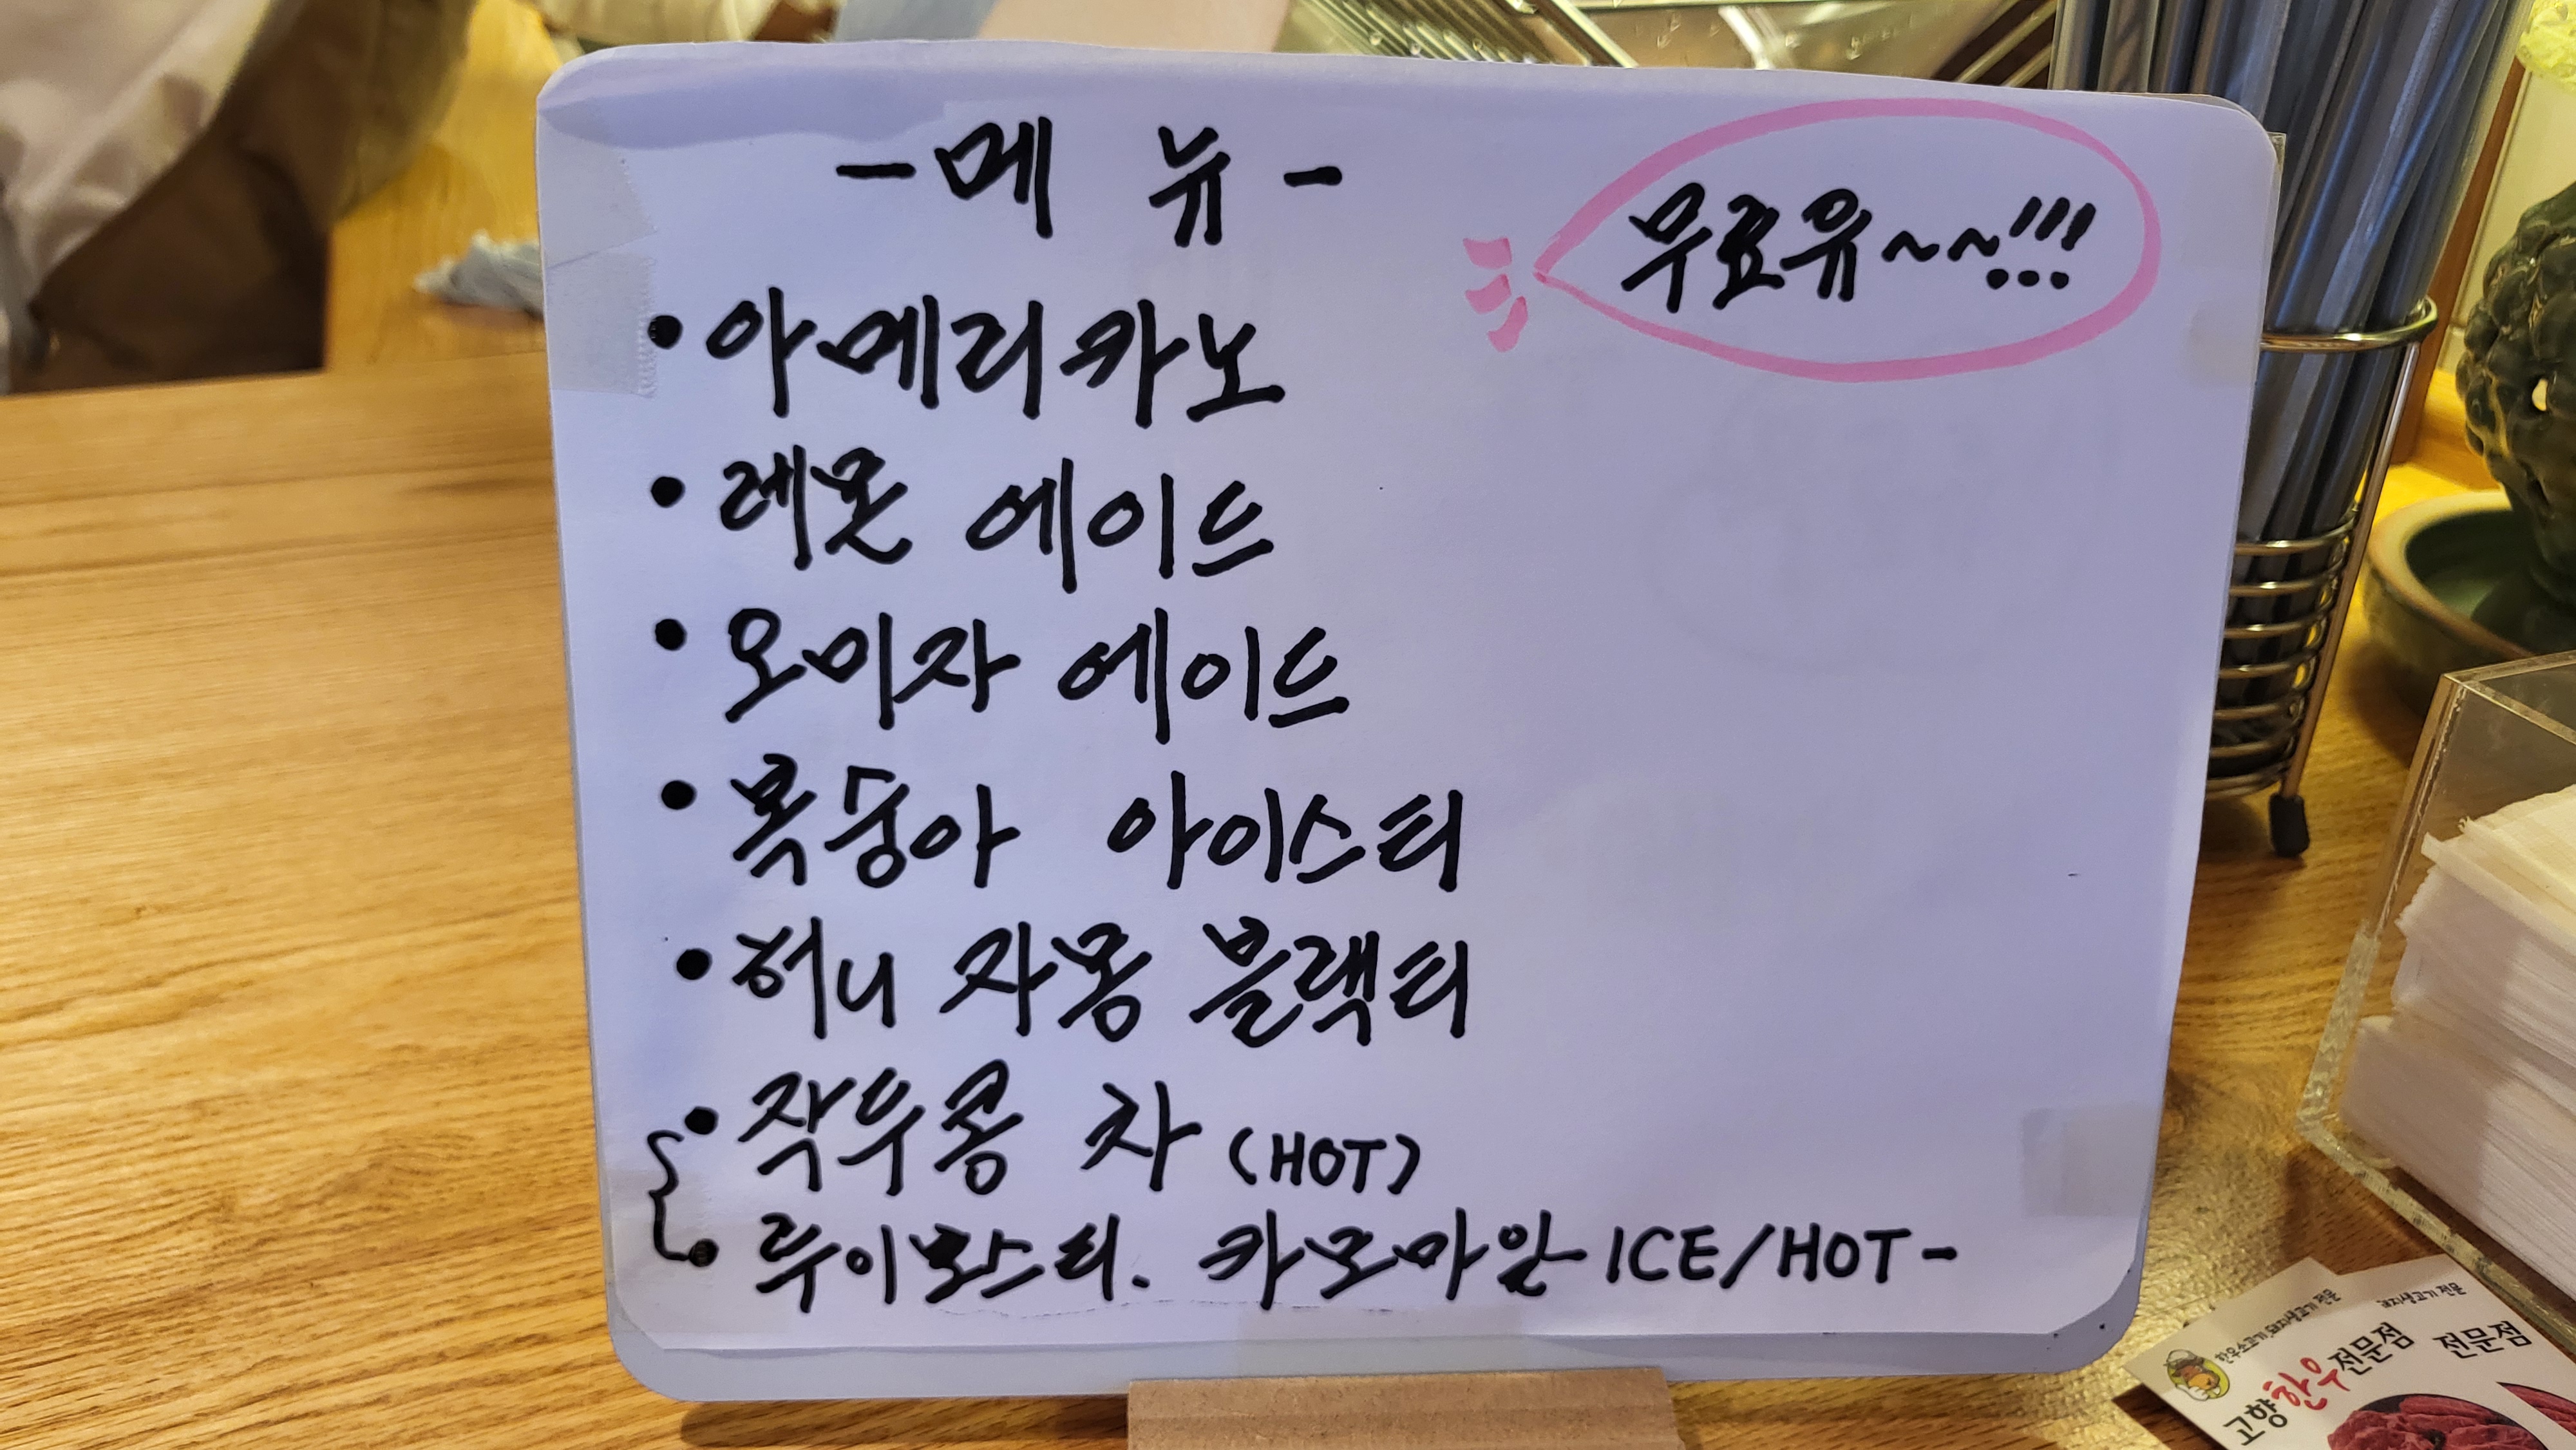 -메 뉴-
무료유~~!!!
• 아메리카노
• 레몬 에이드
• 오미자 에이드
• 복숭아 아이스티
• 허니 자몽 블랙티
• 작두콩 차 (HOT)
• 루이보스티. 카모마일 ICE/HOT-
한우소고기 돼지생고기 전문
고향한우전문점
돼지생고기 전문
전문점